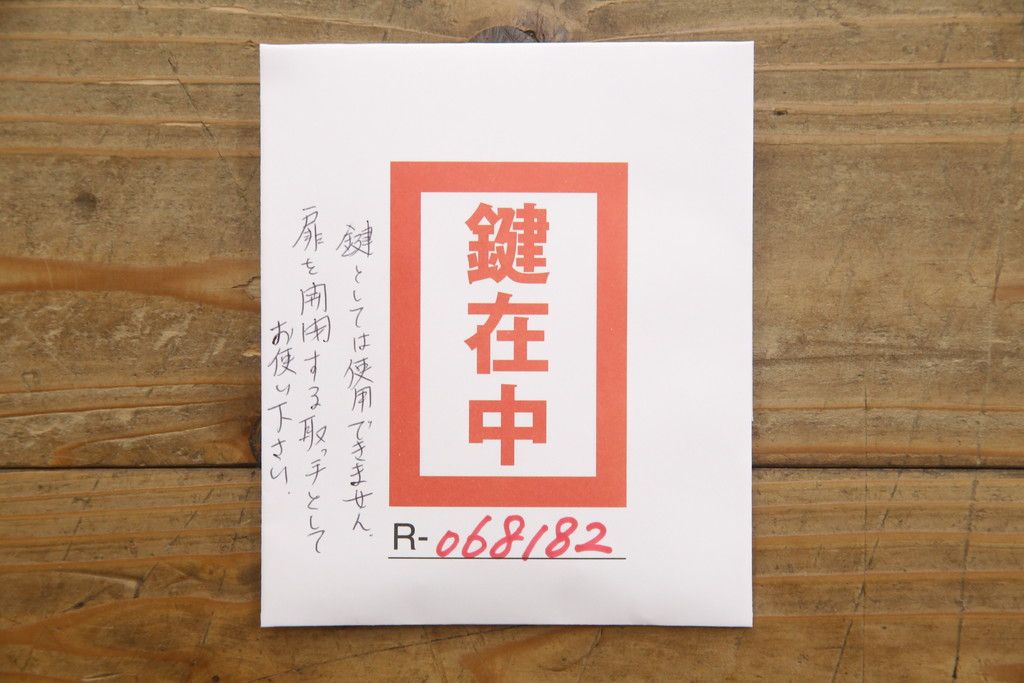 鍵在中
R-068182
鍵としては使用できません.
扉を開閉する取っ手として
お使い下さい.